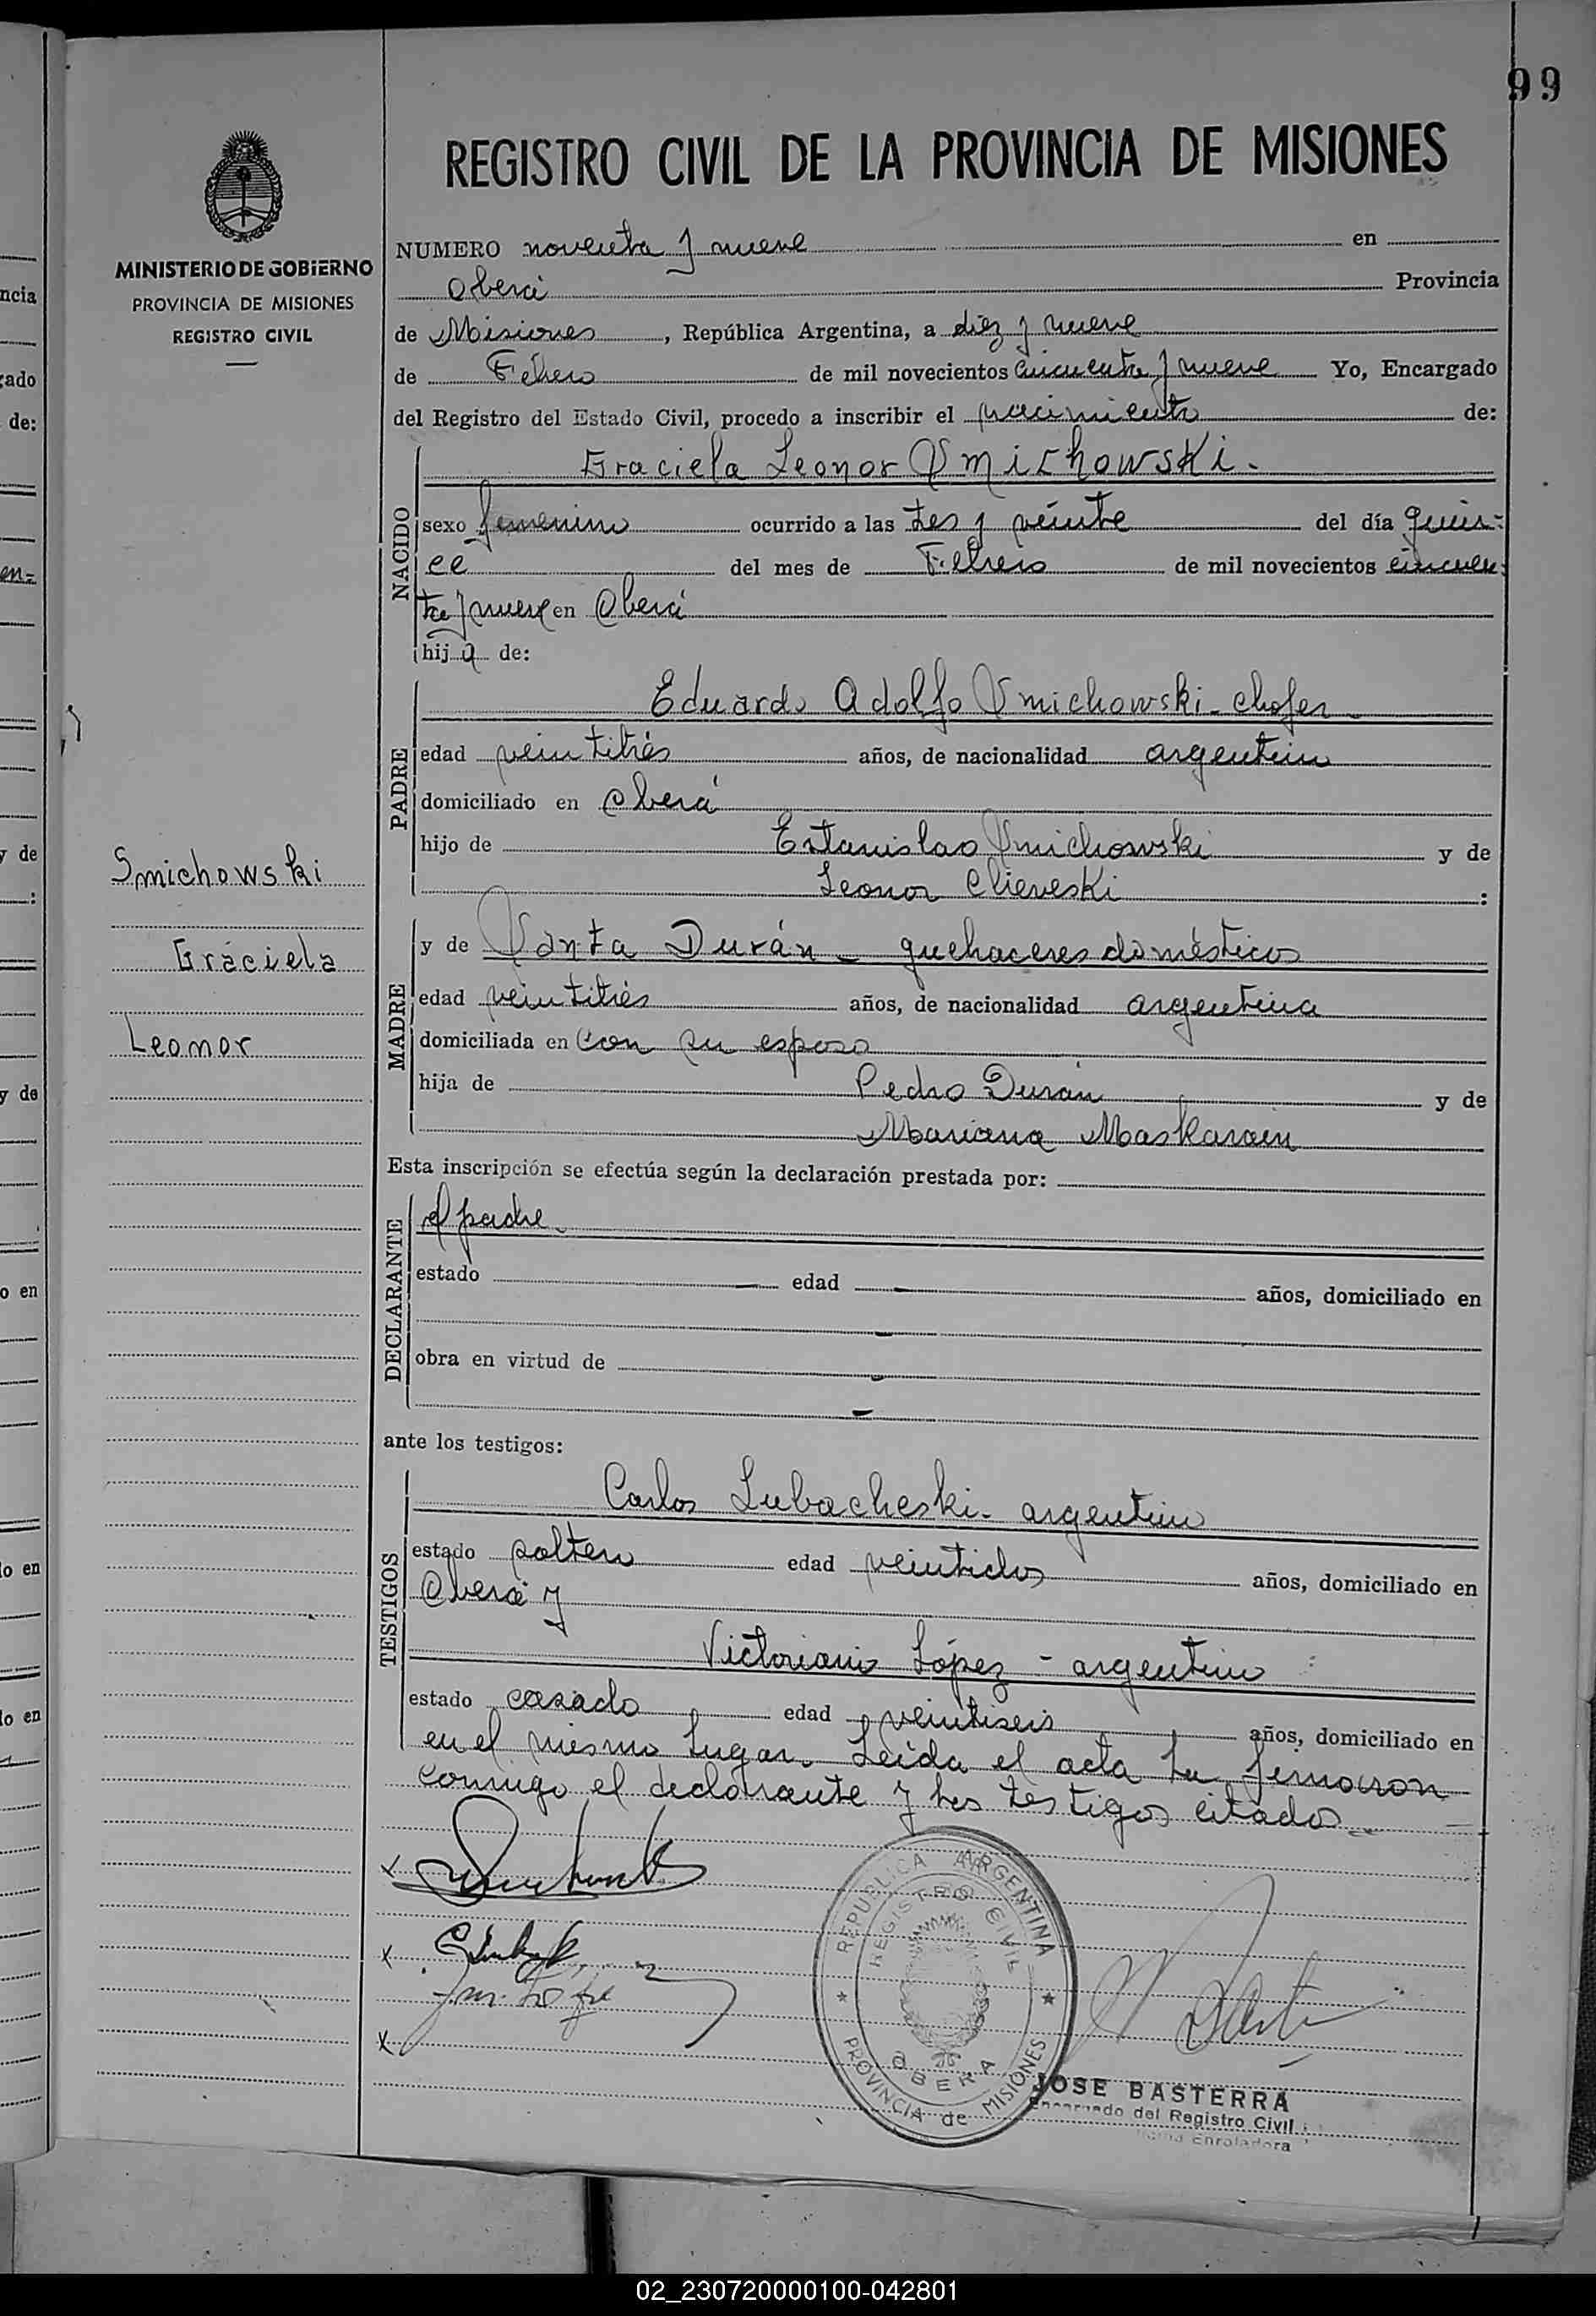 99
REGISTRO CIVIL DE LA PROVINCIA DE MISIONES
MINISTERIO DE GOBIERNO
PROVINCIA DE MISIONES
REGISTRO CIVIL
NUMERO noventa y nueve en
Oberá Provincia
de Misiones, República Argentina, a diez y nueve
de Febrero de mil novecientos cincuenta y nueve Yo, Encargado
del Registro del Estado Civil, procedo a inscribir el nacimiento de:
NACIDO
Graciela Leonor Smichowski.
sexo femenino ocurrido a las tres y veinte del día quin-
ce del mes de Febrero de mil novecientos cincuen-
ta y nueve en Oberá
hija de:
PADRE
Eduardo Adolfo Smichowski - chofer
edad veintitrés años, de nacionalidad argentino
domiciliado en Oberá
hijo de Estanislao Smichowski y de
Leonor Clieveski :
Smichowski
Graciela
Leonor
MADRE
y de Santa Durán - quehaceres domésticos
edad veintitrés años, de nacionalidad argentina
domiciliada en con su esposo
hija de Pedro Durán y de
Mariana Maskaroin
Esta inscripción se efectúa según la declaración prestada por:
DECLARANTE
el padre.
estado — edad — años, domiciliado en
-
obra en virtud de -
-
ante los testigos:
TESTIGOS
Carlos Lubacheski - argentino
estado soltero edad veintidos años, domiciliado en
Oberá y
Victoriano López - argentino
estado casado edad veintiseis años, domiciliado en
en el mismo lugar. Leída el acta la firmaron
conmigo el declarante y los testigos citados.
REPUBLICA ARGENTINA
REGISTRO CIVIL
OBERA
PROVINCIA de MISIONES
JOSE BASTERRA
Encargado del Registro Civil
Enroladora
ncia
gado
de:
en=
y de
:
y de
o en
lo en
lo en
02_230720000100-042801